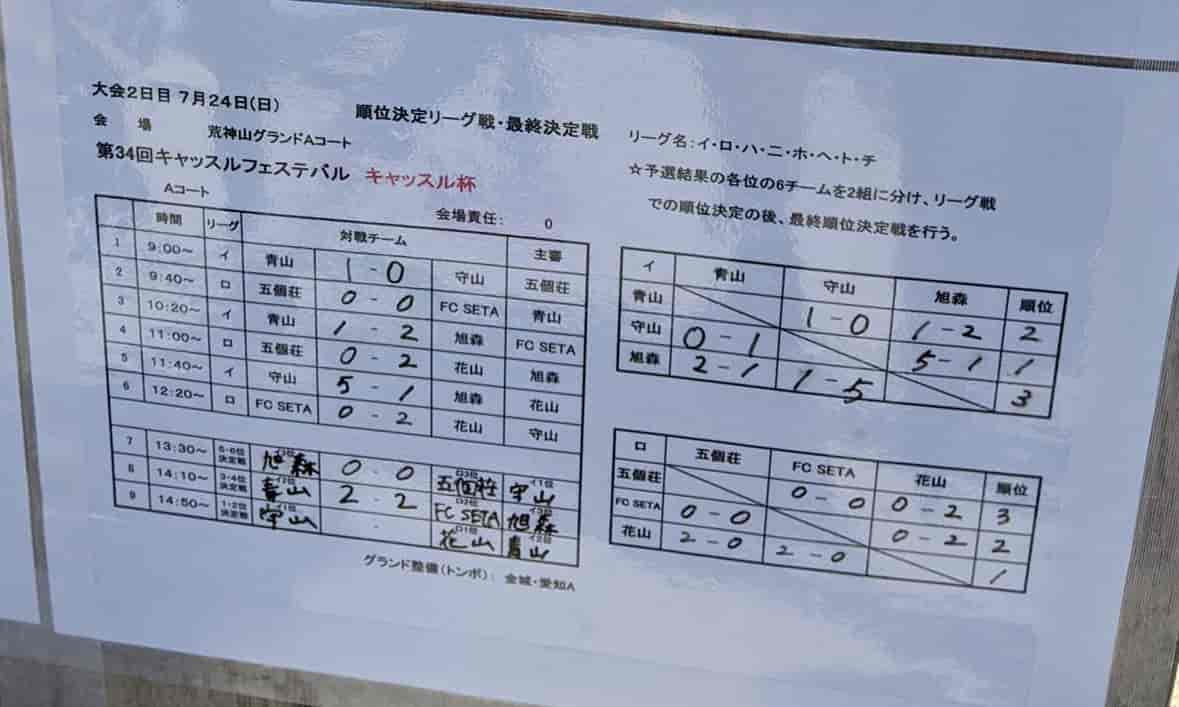 大会2日目 7月24日(日)
順位決定リーグ戦・最終決定戦
会 場 荒神山グランドAコート
第34回キャッスルフェスティバル キャッスル杯
リーグ名:イ・ロ・ハ・ニ・ホ・ヘ・ト・チ
☆予選結果の各位の6チームを2組に分け、リーグ戦
での順位決定の後、最終順位決定戦を行う。
Aコート
会場責任: 0
時間 リーグ 対戦チーム 主審
1 9:00~ イ 青山 1-0 守山 五個荘
2 9:40~ ロ 五個荘 0-0 FC SETA 青山
3 10:20~ イ 青山 1-2 旭森 FC SETA
4 11:00~ ロ 五個荘 0-2 花山 旭森
5 11:40~ イ 守山 5-1 旭森 花山
6 12:20~ ロ FC SETA 0-2 花山 守山
7 13:30~ 5-6位決定戦 イ3位 旭森 0-0 ロ3位 五個荘 イ1位 守山
8 14:10~ 3-4位決定戦 イ2位 青山 2-2 ロ2位 FC SETA イ3位 旭森
9 14:50~ 1-2位決定戦 イ1位 守山 - ロ1位 花山 イ2位 青山
グランド整備(トンボ): 金城・愛知A
イ 青山 守山 旭森 順位
青山 1-0 1-2 2
守山 0-1 5-1 1
旭森 2-1 1-5 3
ロ 五個荘 FC SETA 花山 順位
五個荘 0-0 0-2 3
FC SETA 0-0 0-2 2
花山 2-0 2-0 1